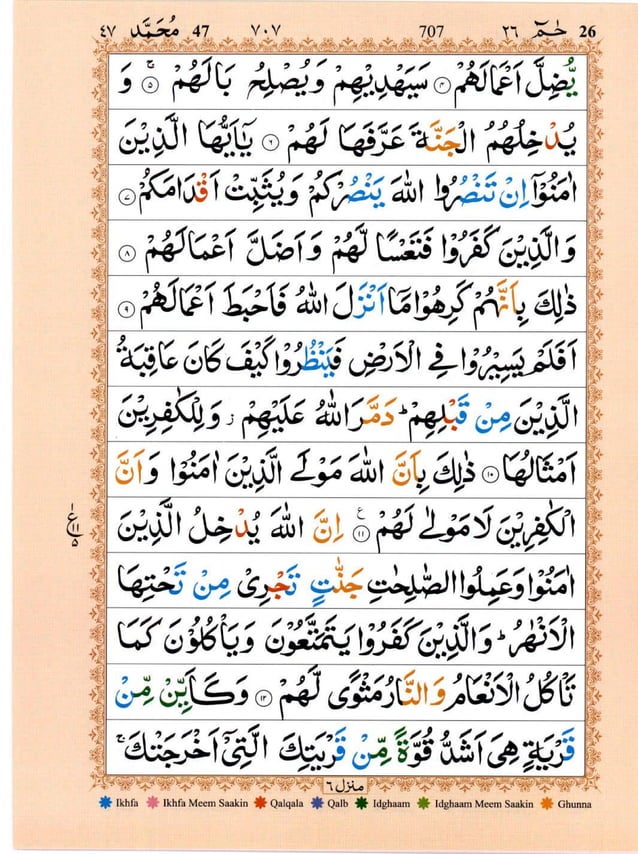 ٤٧ مُحَمَّد 47 ٧٠٧ 707 ٢٦ حٰمٓ 26
يُّضِلَّ اَعْمَالَهُمْ ۝۴ سَيَهْدِيْهِمْ وَيُصْلِحُ بَالَهُمْ ۝۵ۚ وَ
يُدْخِلُهُمُ الْجَنَّةَ عَرَّفَهَا لَهُمْ ۝۶ يٰۤاَيُّهَا الَّذِيْنَ
اٰمَنُوْۤا اِنْ تَنْصُرُوا اللّٰهَ يَنْصُرْكُمْ وَيُثَبِّتْ اَقْدَامَكُمْ ۝۷
وَالَّذِيْنَ كَفَرُوْا فَتَعْسًا لَّهُمْ وَاَضَلَّ اَعْمَالَهُمْ ۝۸
ذٰلِكَ بِاَنَّهُمْ كَرِهُوْا مَاۤ اَنْزَلَ اللّٰهُ فَاَحْبَطَ اَعْمَالَهُمْ ۝۹
اَفَلَمْ يَسِيْرُوْا فِى الْاَرْضِ فَيَنْظُرُوْا كَيْفَ كَانَ عَاقِبَةُ
الَّذِيْنَ مِنْ قَبْلِهِمْؕ دَمَّرَ اللّٰهُ عَلَيْهِمْؗ وَلِلْكٰفِرِيْنَ
اَمْثَالُهَا ۝۱۰ ذٰلِكَ بِاَنَّ اللّٰهَ مَوْلَى الَّذِيْنَ اٰمَنُوْا وَاَنَّ
الْكٰفِرِيْنَ لَا مَوْلٰى لَهُمْ ۝۱۱ ع اِنَّ اللّٰهَ يُدْخِلُ الَّذِيْنَ
ع ۱۱ ۵
اٰمَنُوْا وَعَمِلُوا الصّٰلِحٰتِ جَنّٰتٍ تَجْرِىْ مِنْ تَحْتِهَا
الْاَنْهٰرُؕ وَالَّذِيْنَ كَفَرُوْا يَتَمَتَّعُوْنَ وَيَاْكُلُوْنَ كَمَا
تَاْكُلُ الْاَنْعَامُ وَالنَّارُ مَثْوًى لَّهُمْ ۝۱۲ وَكَاَيِّنْ مِّنْ
قَرْيَةٍ هِىَ اَشَدُّ قُوَّةً مِّنْ قَرْيَتِكَ الَّتِىْۤ اَخْرَجَتْكَۚ
منزل ٦
Ikhfa Ikhfa Meem Saakin Qalqala Qalb Idghaam Idghaam Meem Saakin Ghunna